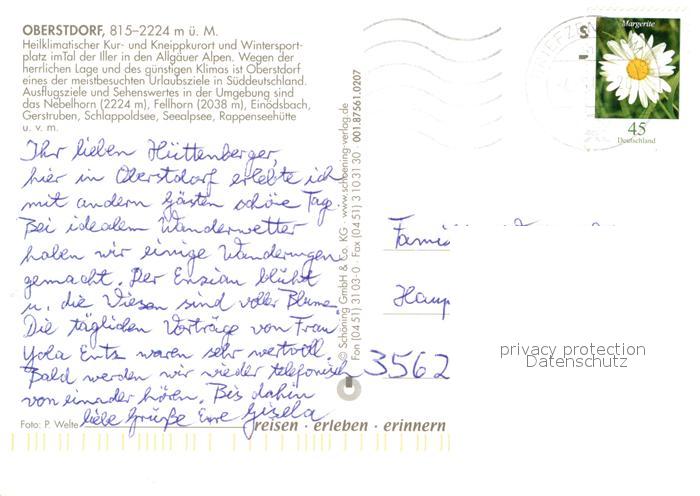 OBERSTDORF, 815–2224 m ü. M.
Heilklimatischer Kur- und Kneippkurort und Wintersport-
platz imTal der Iller in den Allgäuer Alpen. Wegen der
herrlichen Lage und des günstigen Klimas ist Oberstdorf
eines der meistbesuchten Urlaubsziele in Süddeutschland.
Ausflugsziele und Sehenswertes in der Umgebung sind
das Nebelhorn (2224 m), Fellhorn (2038 m), Einödsbach,
Gerstruben, Schlappoldsee, Seealpsee, Rappenseehütte
u. v. m.
Ihr lieben Hüttenberger,
hier in Oberstdorf erlebte ich
mit andern Gästen schöne Tage.
Bei idealem Wanderwetter
haben wir einige Wanderungen
gemacht. Der Enzian blüht
u. die Wiesen sind voller Blumen.
Die täglichen Vorträge von Frau
Yola Entz waren sehr wertvoll.
Bald werden wir wieder telefonisch
von einander hören. Bis dahin
liebe Grüße Eure Gisela
Foto: P. Welte
reisen · erleben · erinnern
© Schöning GmbH & Co. KG · www.schoening-verlag.de
Fon (04 51) 31 03-0 · Fax (04 51) 3 10 31 30 · 001.87561.0207
Margerite
45
Deutschland
Fami
Haup
3562
privacy protection
Datenschutz